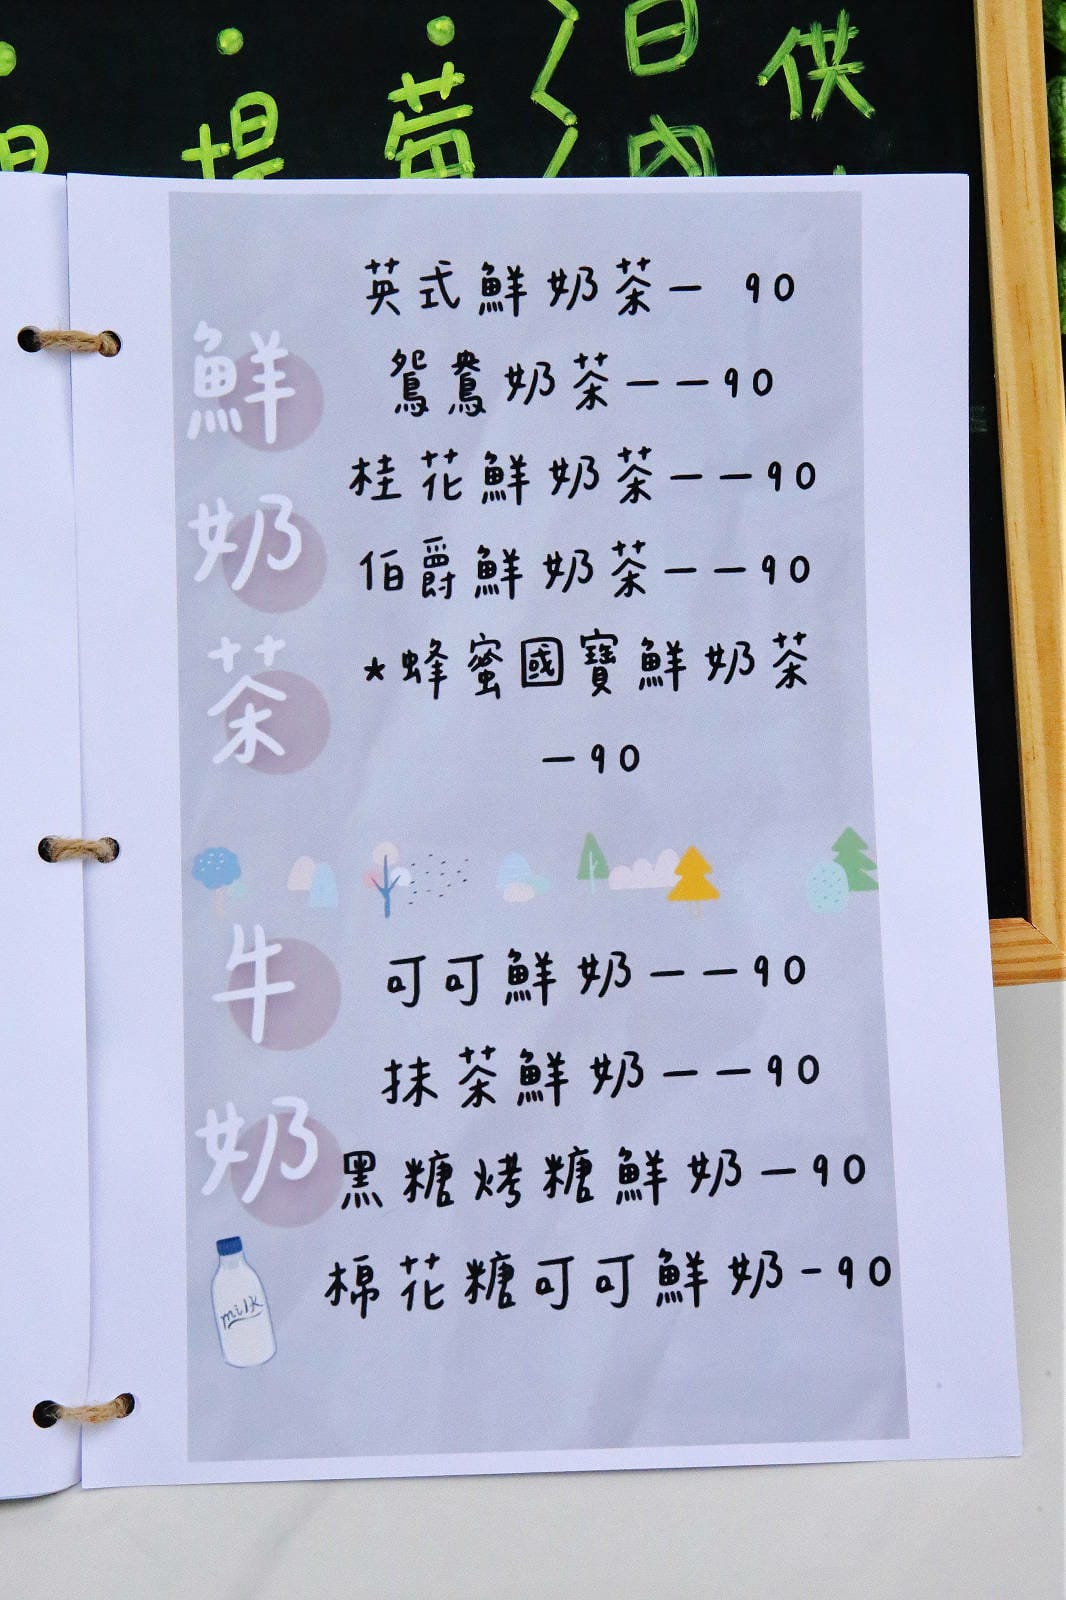 日 供
鮮奶茶
英式鮮奶茶— 90
鴛鴦奶茶——90
桂花鮮奶茶——90
伯爵鮮奶茶——90
★蜂蜜國寶鮮奶茶
—90
牛奶
可可鮮奶——90
抹茶鮮奶——90
黑糖烤糖鮮奶—90
棉花糖可可鮮奶-90
milk